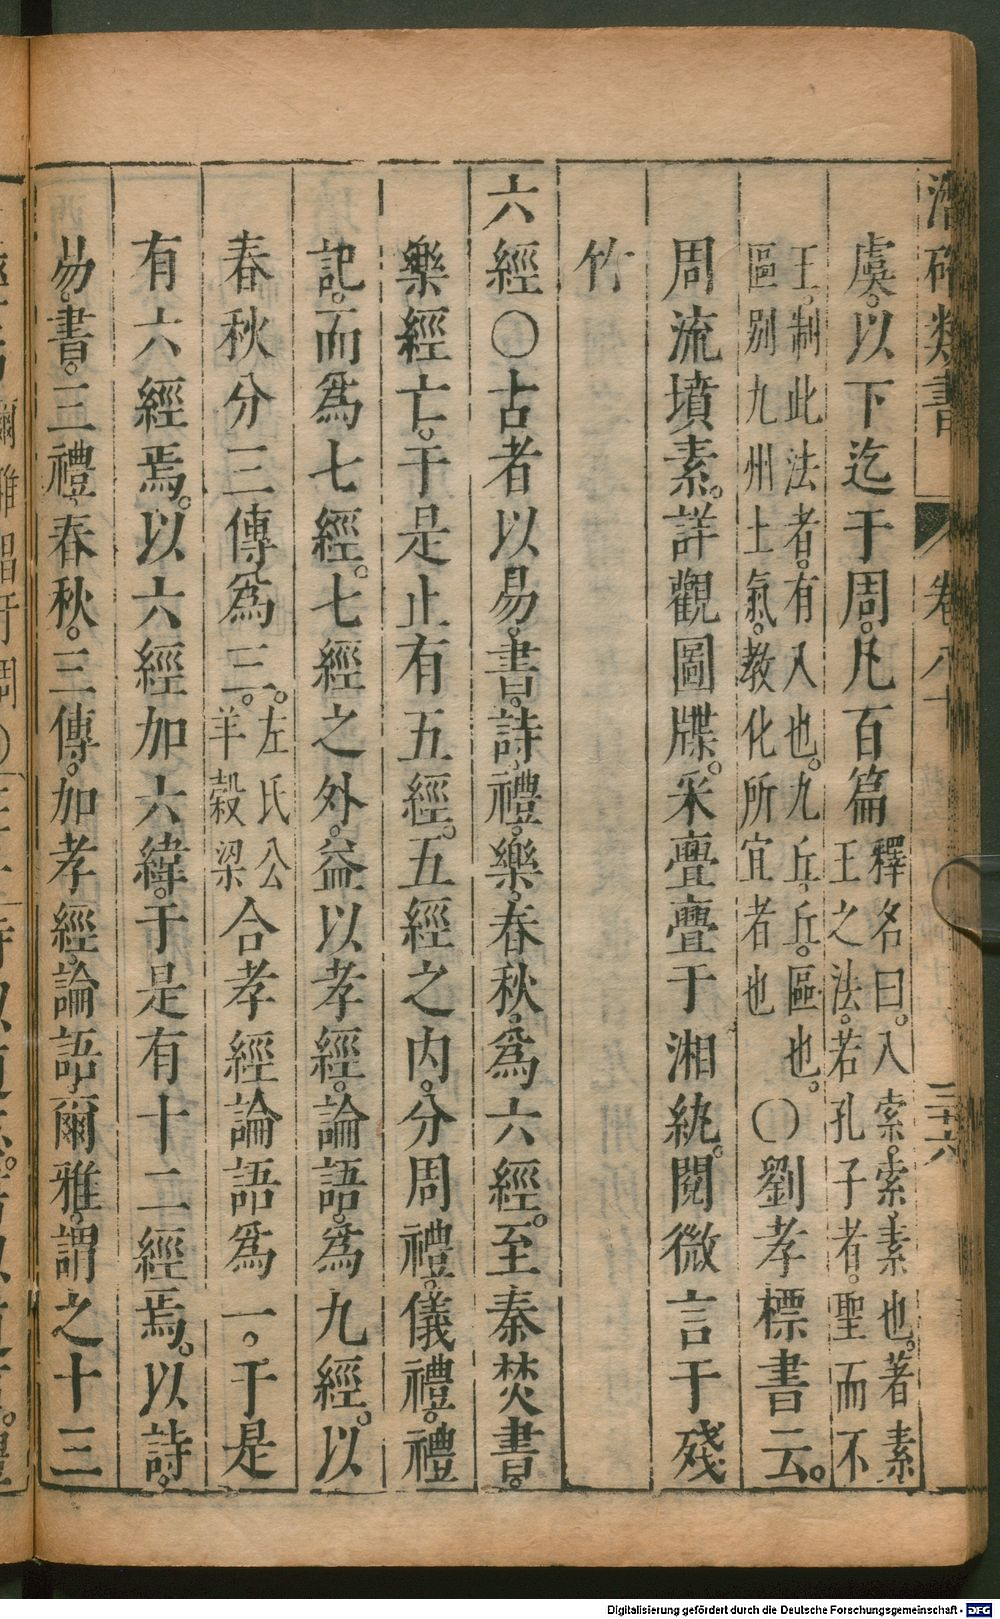 潛确類書 卷八十 三十六
虞。以下迄于周。凡百篇釋名曰。八索。索素也。著素王之法。若孔子者。聖而不
王。制此法者。有八也。九丘。丘。區也。區别九州土氣。教化所宜者也○劉孝標書云。
周流墳素。詳觀圖牒。采亹亹于湘紈。閱微言于殘
竹
六經○古者以易。書。詩。禮。樂。春秋。爲六經。至秦焚書。
樂經亡。于是止有五經。五經之内。分周禮。儀禮。禮
記。而爲七經。七經之外。益以孝經。論語。爲九經。以
春秋分三傳爲三。左氏公羊穀梁合孝經論語爲一。于是
有六經焉。以六經加六緯。于是有十二經焉。以詩。
易。書。三禮。春秋。三傳。加孝經。論語。爾雅。謂之十三
Digitalisierung gefördert durch die Deutsche Forschungsgemeinschaft - DFG